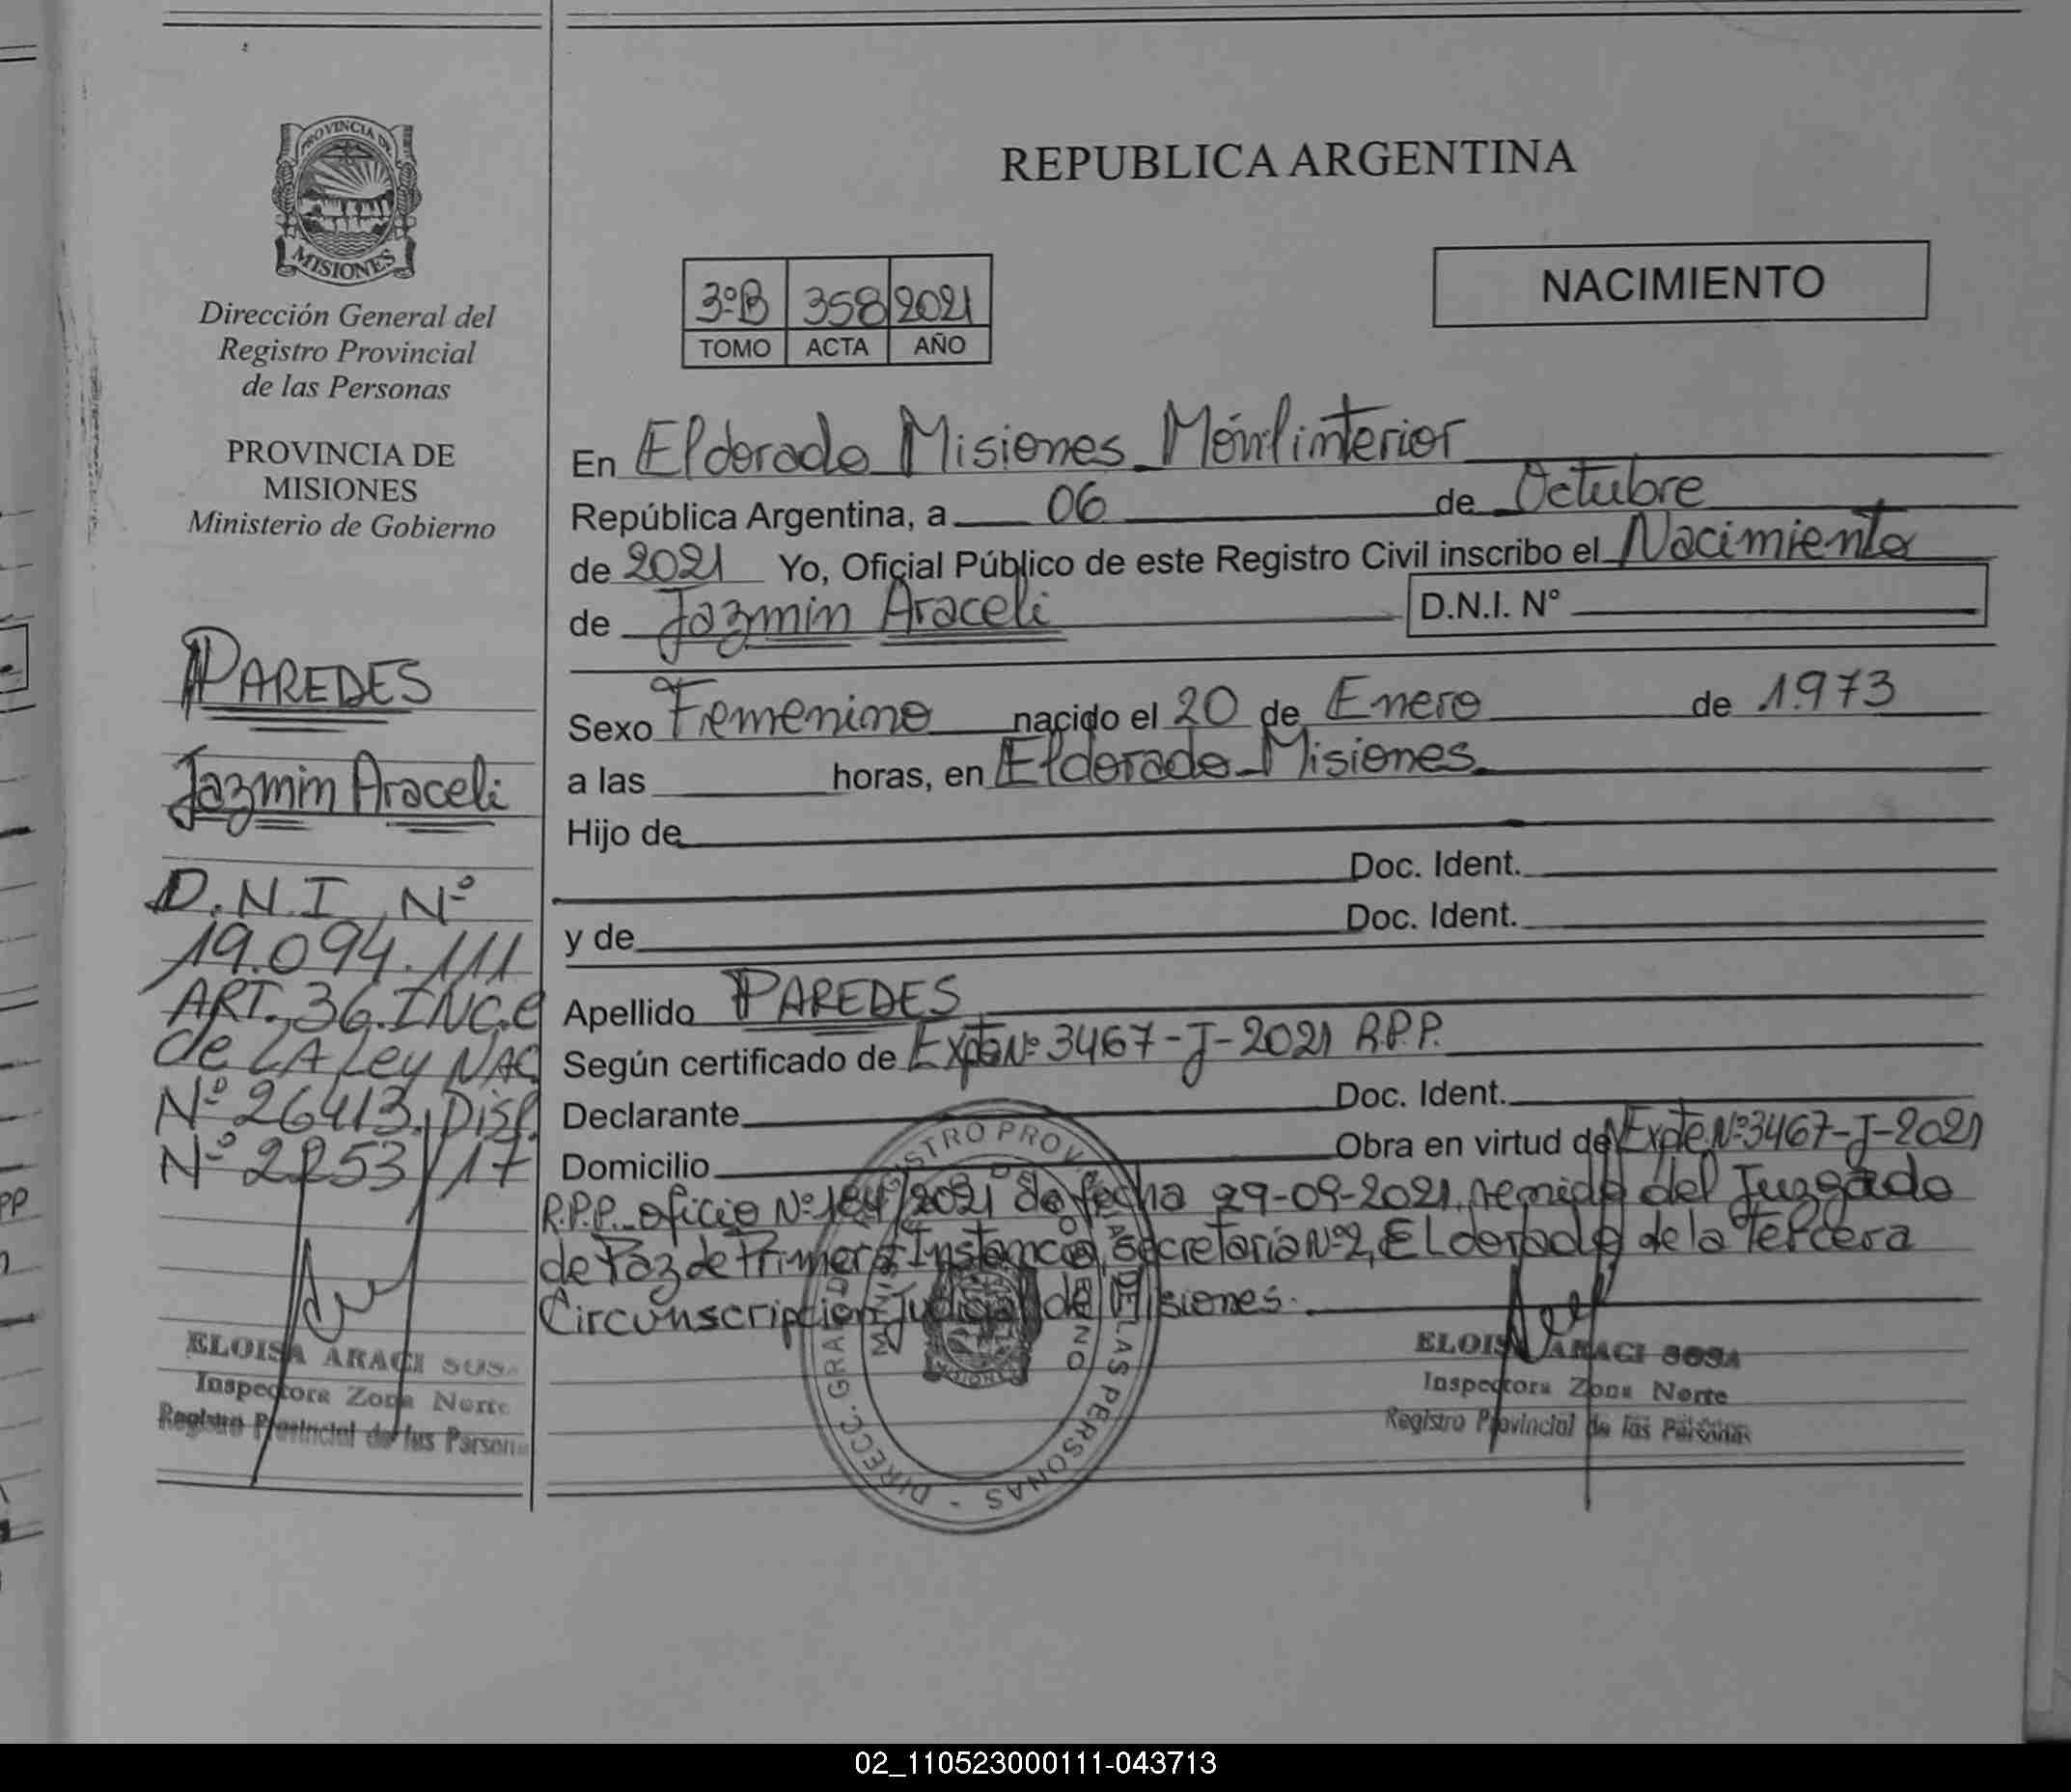 PROVINCIA DE
MISIONES
Dirección General del
Registro Provincial
de las Personas
PROVINCIA DE
MISIONES
Ministerio de Gobierno
PAREDES
Jazmin Araceli
D.N.I. Nº
19.094.111
ART. 36. INC.e
de LA Ley NAC
Nº 26413. Disp.
Nº 2253/17
ELOISA ARACI SOSA
Inspectora Zona Norte
Registro Provincial de las Person
REPUBLICA ARGENTINA
NACIMIENTO
3ºB 358 2021
TOMO ACTA AÑO
En Eldorado Misiones Móvil interior
República Argentina, a 06 de Octubre
de 2021 Yo, Oficial Público de este Registro Civil inscribo el Nacimiento
de Jazmin Araceli D.N.I. N°
Sexo Femenino nacido el 20 de Enero de 1.973
a las horas, en Eldorado Misiones
Hijo de
Doc. Ident.
y de Doc. Ident.
Apellido PAREDES
Según certificado de Expte Nº 3467-J-2021 R.P.P.
Declarante Doc. Ident.
Domicilio Obra en virtud de Expte. Nº 3467-J-2021
R.P.P. oficio Nº /2021 de fecha 29-09-2021, remido del Juzgado
de Paz de Primera Instancia, Secretaria Nº2, ELdorado de la Tercera
Circunscripcion Judicial de Misiones.
DIRECC. GRAL. D STRO PROV LAS PERSONAS
ELOISA ARACI SOSA
Inspectora Zona Norte
Registro Provincial de las Personas
PP
02_110523000111-043713